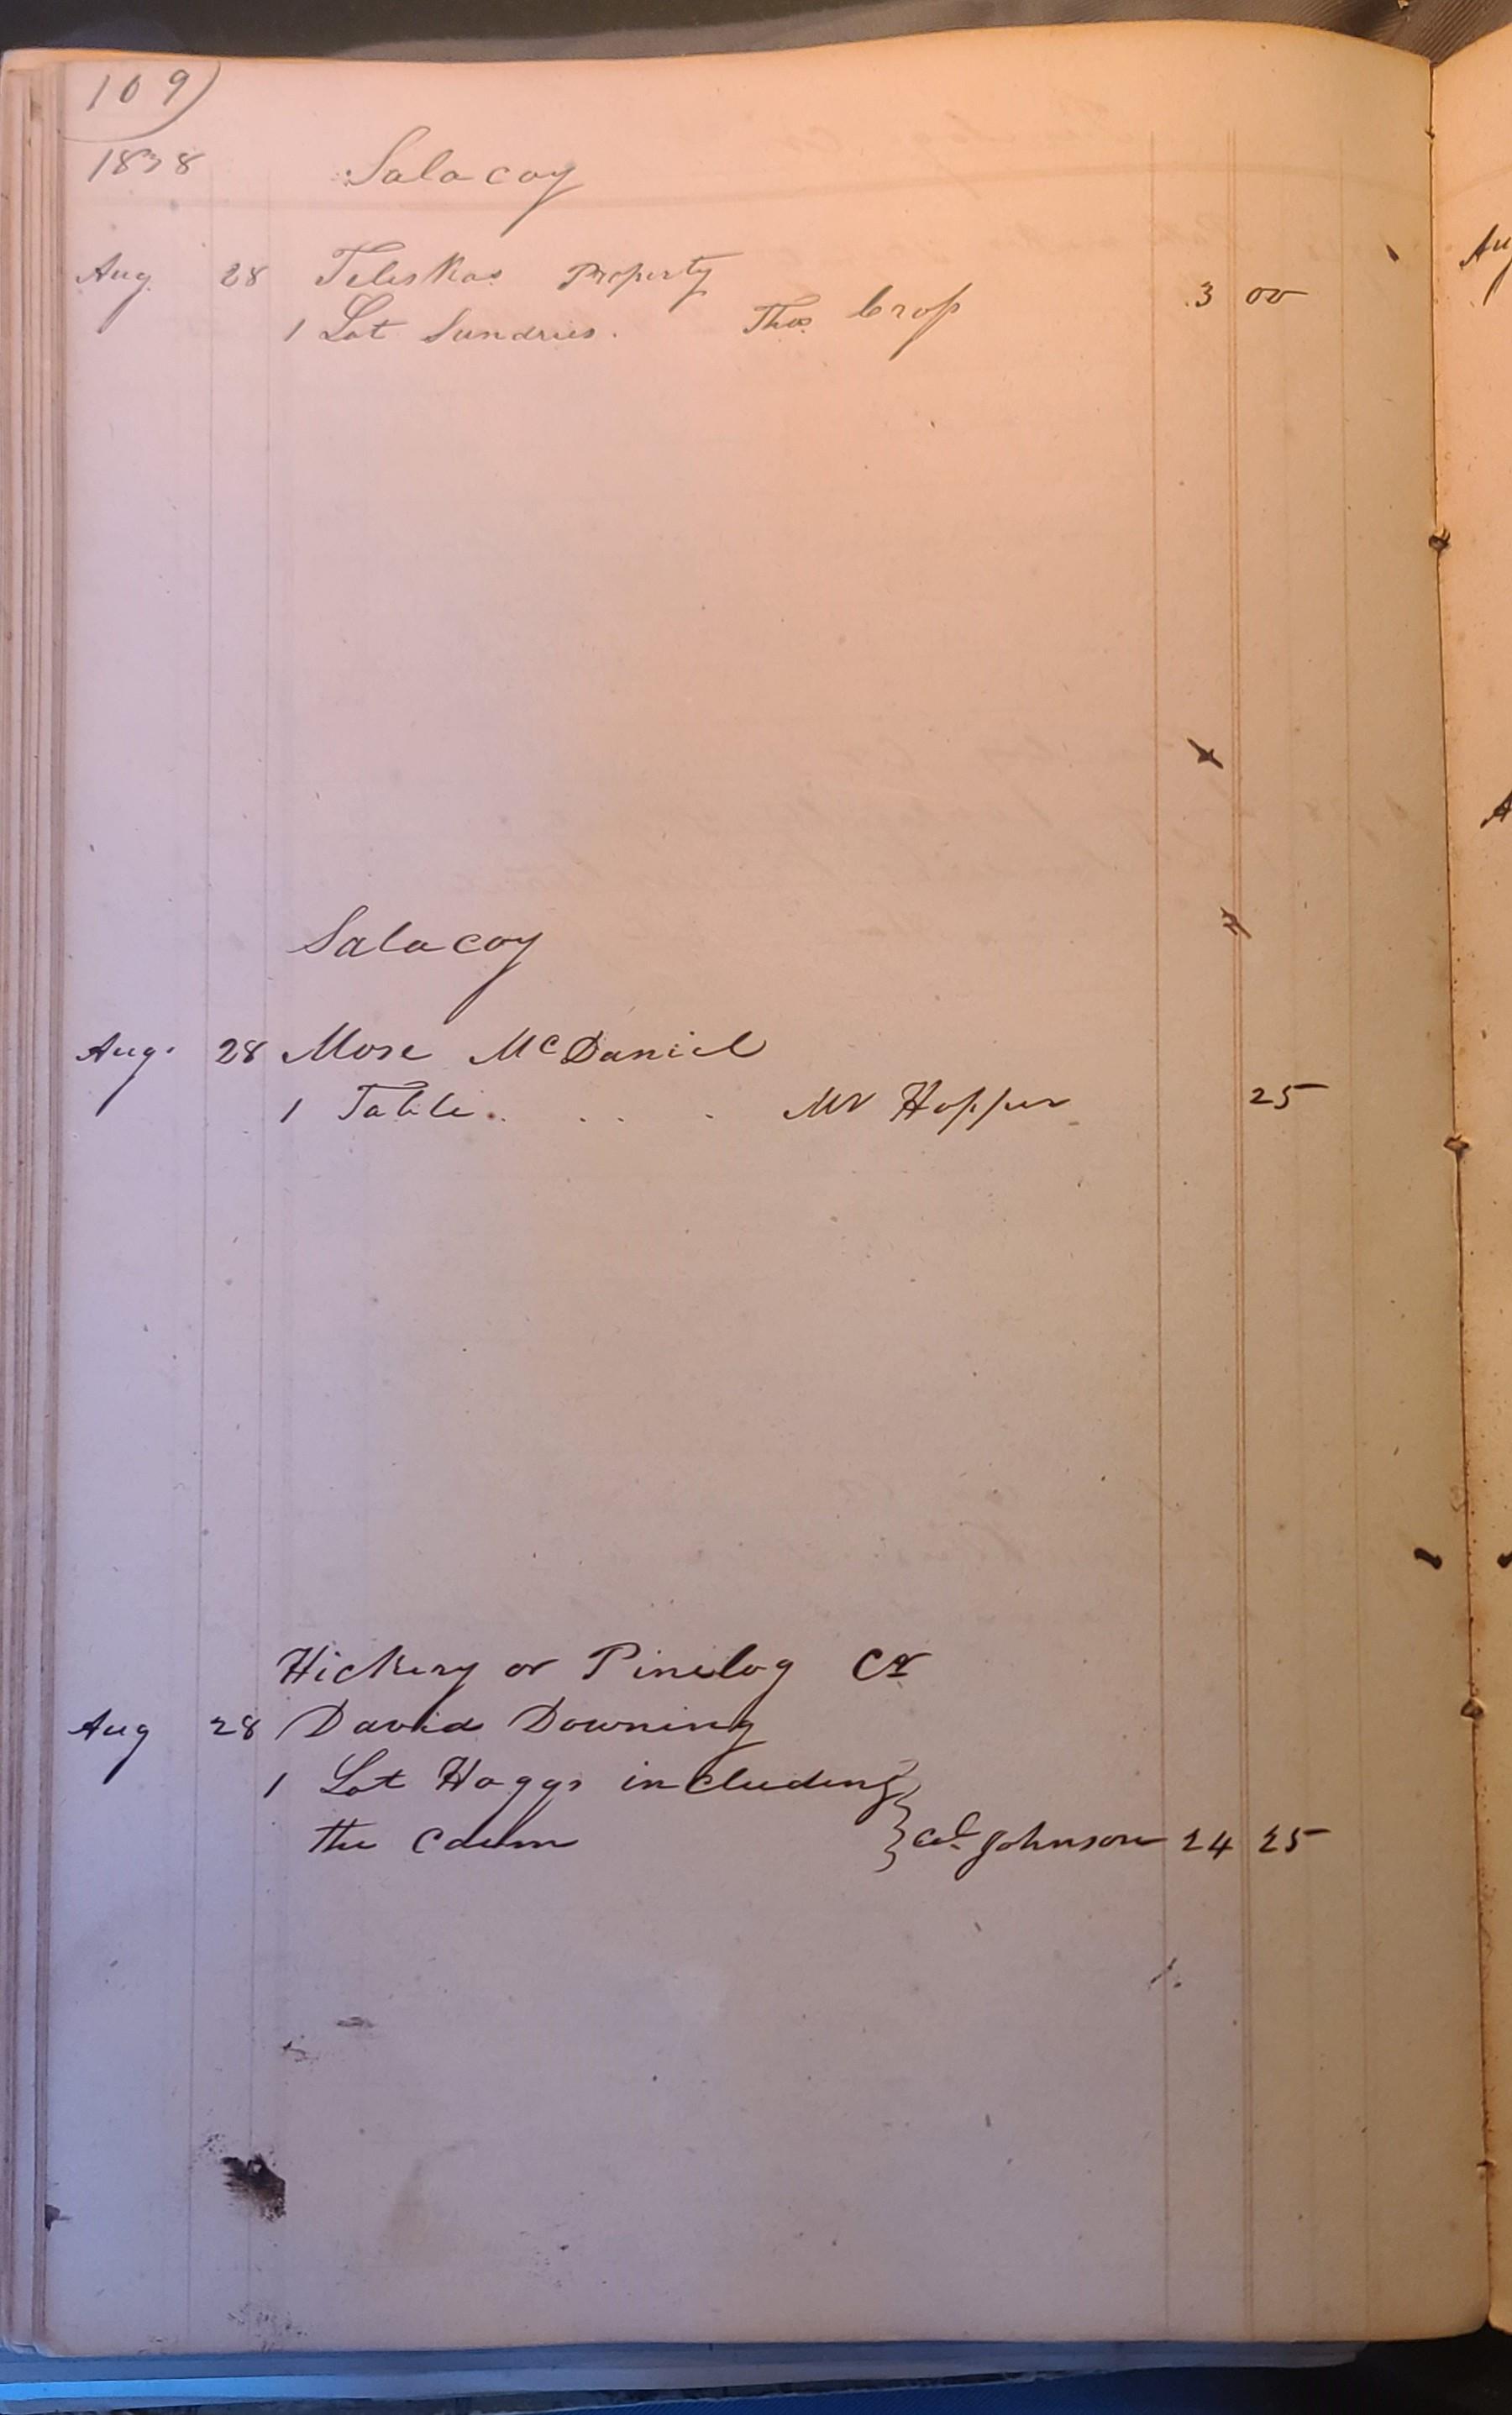 109)
1838 Salacoy
Aug. 28 Teleskas Property
1 Lot Sundries. Thos. Crop 3 00
Salacoy
Aug. 28 Mose McDaniel
1 Table. . . . . Mr Hopper 25
Hickery or Pinelog Cr
Aug 28 David Downing
1 Lot Hoggs including
the Claim } Col. Johnson 24 25
Au
A